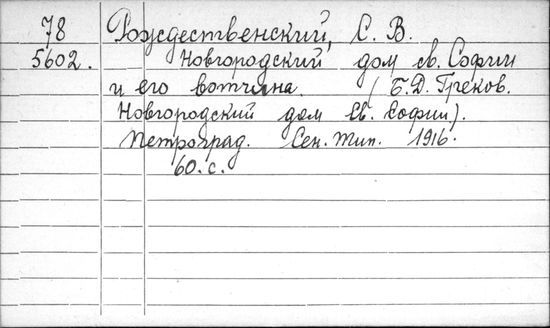 78 Рождественский, С. В.
5602. Новгородский дом св. Софии
и его вотчина. (Б. Д. Греков.
Новгородский дом св. Софии).
Петроград. Сен. тип. 1916.
60. с.